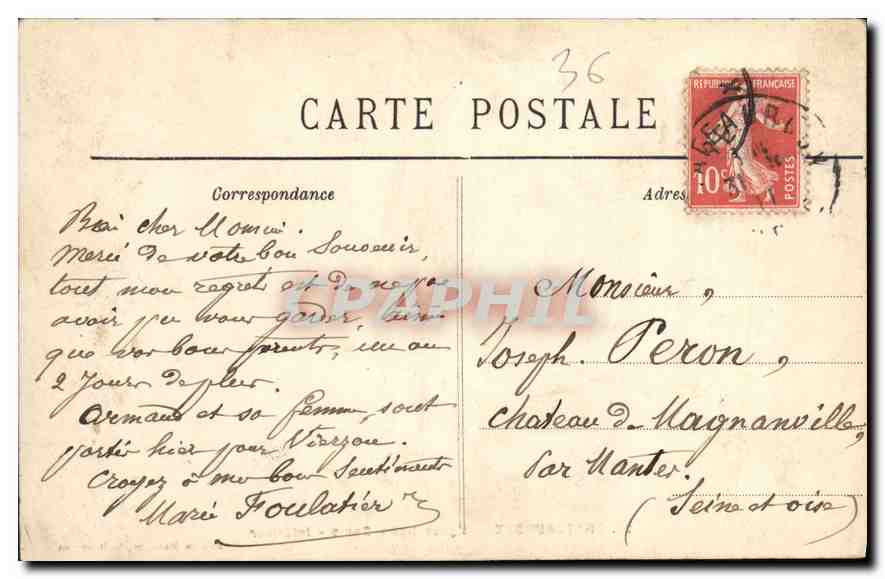 36
CARTE POSTALE
REPUBLIQUE FRANÇAISE
10c
POSTES
Correspondance
Adres
Bien cher Monsieur.
Merci de votre bon Souvenir,
tout mon regrets est de ne pas
avoir pu vous garder, ainsi
que vos bons parents, un ou
2 Jours de plus.
Armand et sa femme, sont
partis hier pour Vierzon.
Croyez à me bon Sentiments
Marie Foulatier
Monsieur,
Joseph. Peron,
Chateau de Magnanville,
Par Mantes.
(Seine et oise)
CPAPHIL